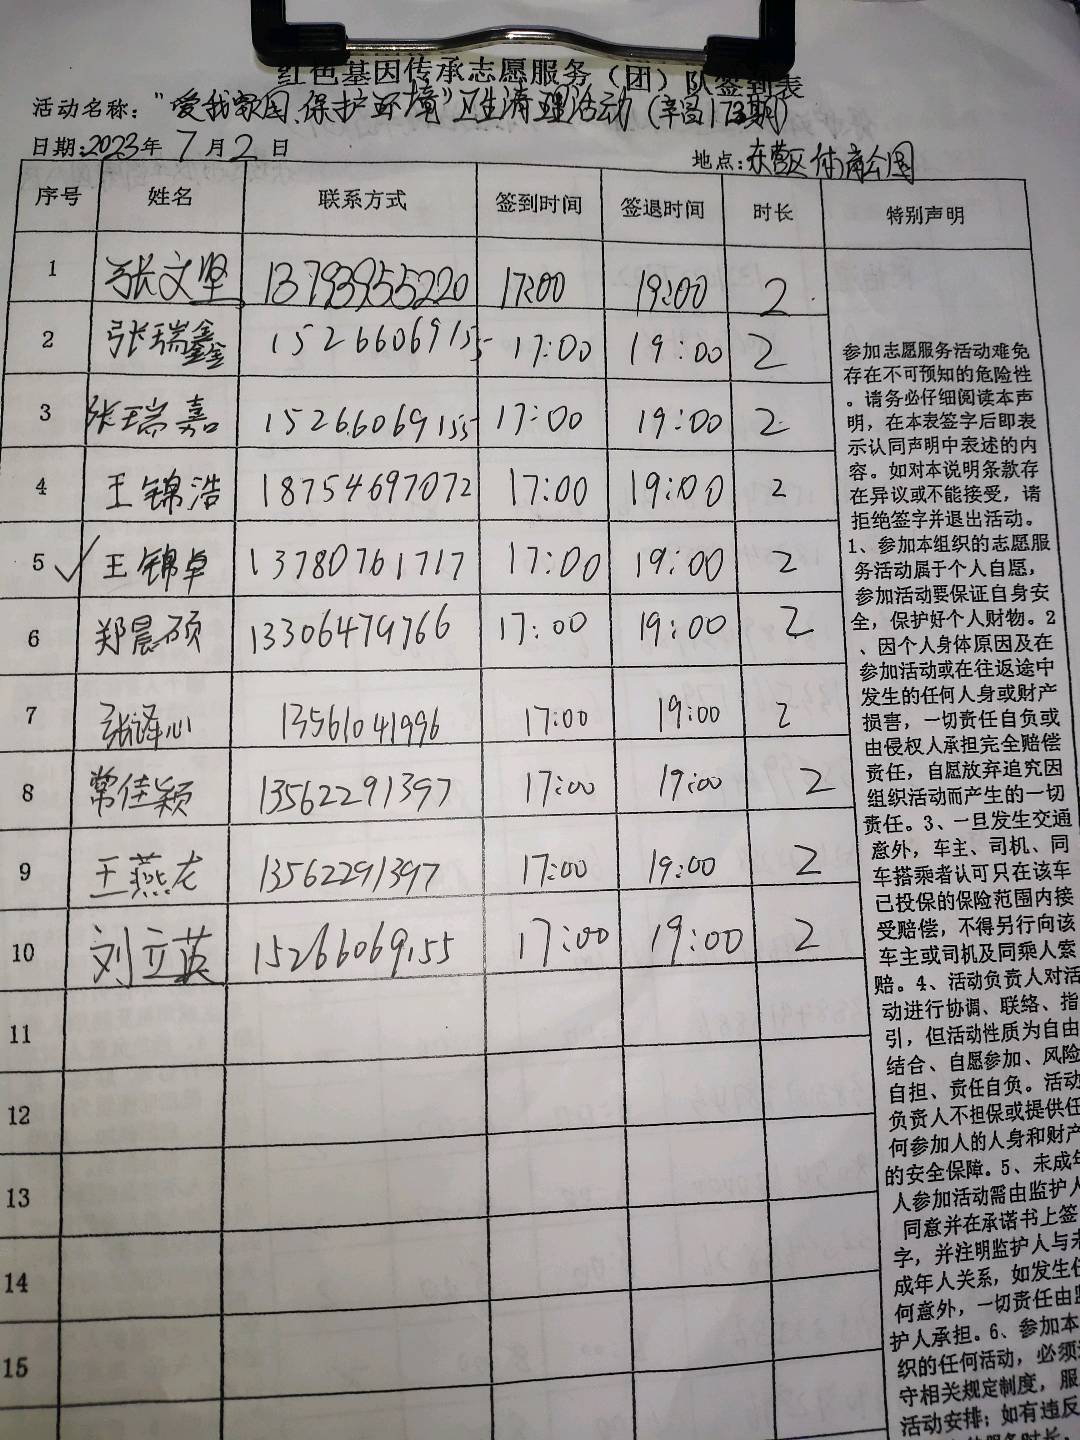 红色基因传承志愿服务（团）队签到表
活动名称："爱我家园、保护环境"卫生清理活动（辛昌173期）
日期:2023年 7月2日 地点:东营区体南公园
序号 姓名 联系方式 签到时间 签退时间 时长 特别声明
1 张文坚 13793955220 17:00 19:00 2
2 张瑞鑫 15266069155 17:00 19:00 2
3 张瑞嘉 15266069155 17:00 19:00 2
4 王锦浩 18754697072 17:00 19:00 2
5 ✓ 王锦卓 13780761717 17:00 19:00 2
6 郑晨硕 13306479766 17:00 19:00 2
7 张译心 13561041996 17:00 19:00 2
8 常佳颖 13562291397 17:00 19:00 2
9 王燕龙 13562291397 17:00 19:00 2
10 刘立英 15266069155 17:00 19:00 2
11
12
13
14
15
参加志愿服务活动难免
存在不可预知的危险性
。请务必仔细阅读本声
明，在本表签字后即表
示认同声明中表述的内
容。如对本说明条款存
在异议或不能接受，请
拒绝签字并退出活动。
1、参加本组织的志愿服
务活动属于个人自愿，
参加活动要保证自身安
全，保护好个人财物。2
、因个人身体原因及在
参加活动或在往返途中
发生的任何人身或财产
损害，一切责任自负或
由侵权人承担完全赔偿
责任，自愿放弃追究因
组织活动而产生的一切
责任。3、一旦发生交通
意外，车主、司机、同
车搭乘者认可只在该车
已投保的保险范围内接
受赔偿，不得另行向该
车主或司机及同乘人索
赔。4、活动负责人对活
动进行协调、联络、指
引，但活动性质为自由
结合、自愿参加、风险
自担、责任自负。活动
负责人不担保或提供任
何参加人的人身和财产
的安全保障。5、未成年
人参加活动需由监护人
同意并在承诺书上签
字，并注明监护人与未
成年人关系，如发生任
何意外，一切责任由监
护人承担。6、参加本
织的任何活动，必须
守相关规定制度，服
活动安排；如有违反